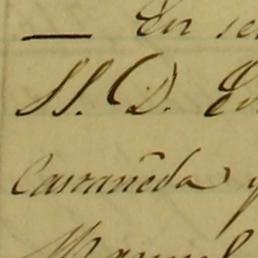 — En se
SS. D. E
Castañeda y
Manuel